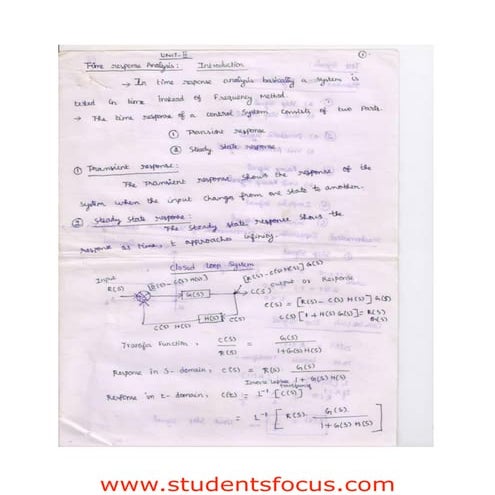 UNIT-II
Time response Analysis: Introduction
→ In time response analysis basically a system is
tested in time instead of Frequency Method.
→ The time response of a control system consists of two Parts.
① Transient response
② Steady state response
① Transient response:
The Transient response shows the response of the
system when the input changes from one state to another.
② Steady State response:
The steady state response shows the
response as time, t approaches infinity.
Closed Loop System
Input [R(S)-C(S) H(S)] [R(S)-C(S)H(S)] G(S)
R(S) G(S) C(S) output or Response
C(S) = [R(S)- C(S) H(S)] G(S)
C(S) H(S) H(S) C(S) C(S) [1+H(S) G(S)] = R(S) G(S)
Transfer Function, C(S)/R(S) = G(S)/1+G(S)H(S)
Response in S-domain; C(S) = R(S). G(S)/1+G(S)H(S)
Inverse Laplace Transform
Response in t-domain; C(t) = L⁻¹ [C(S)]
= L⁻¹ [R(S). G(S)/1+G(S)H(S)]
www.studentsfocus.com